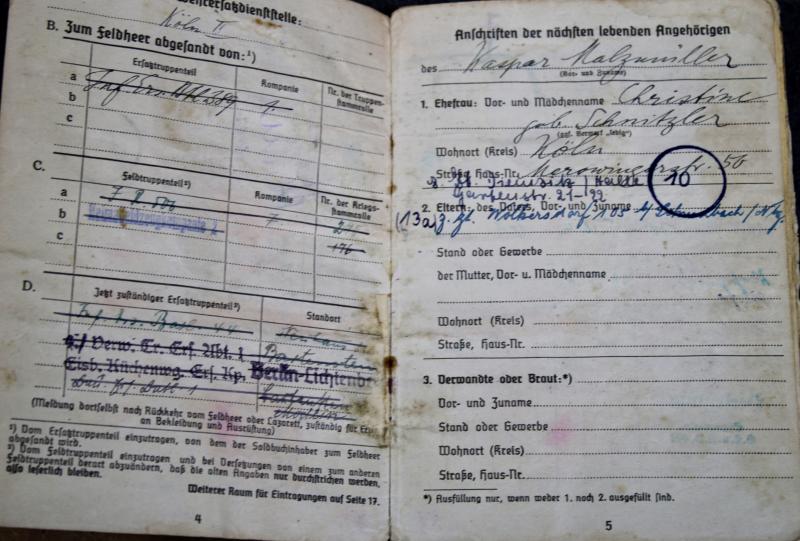 Wehrersatzdienststelle:
Köln II
B. Zum Feldheer abgesandt von:¹)
Ersatztruppenteil
Kompanie
Nr. der Truppenstammrolle
a
b
c
C.
Feldtruppenteil²)
Kompanie
Nr. der Kriegsstammrolle
a
b
7
c
176
D.
Jetzt zuständiger Ersatztruppenteil³)
Standort
Verw. Tr. Ers. Abt. 1
Eisb. Küchenwg. Ers. Kp. Berlin-Lichtenbe
(Meldung dortselbst nach Rückkehr vom Feldheer oder Lazarett, zuständig für Ersatz
an Bekleidung und Ausrüstung)
¹) Vom Ersatztruppenteil einzutragen, von dem der Soldbuchinhaber zum Feldheer
abgesandt wird.
²) Vom Feldtruppenteil einzutragen und bei Versetzungen von einem zum anderen
Feldtruppenteil derart abzuändern, daß die alten Angaben nur durchstrichen werden,
also leserlich bleiben.
Weiterer Raum für Eintragungen auf Seite 17.
4
Anschriften der nächsten lebenden Angehörigen
des Kaspar Malzmüller
(Vor- und Zuname)
1. Ehefrau: Vor- und Mädchenname Christine
geb. Schnitzler
(ggf. Vermerk „ledig“)
Wohnort (Kreis) Köln
Straße, Haus-Nr. Merowingerstr. 56
10
Gartenstr. 21
2. Eltern: des Vaters, Vor- und Zuname
(13a) Wolkersdorf 105
Stand oder Gewerbe
der Mutter, Vor- u. Mädchenname
Wohnort (Kreis)
Straße, Haus-Nr.
3. Verwandte oder Braut:*)
Vor- und Zuname
Stand oder Gewerbe
Wohnort (Kreis)
Straße, Haus-Nr.
*) Ausfüllung nur, wenn weder 1. noch 2. ausgefüllt sind.
5